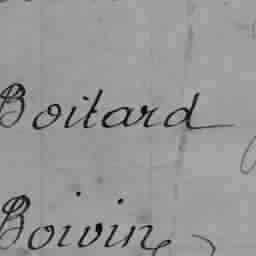 Boitard
Boivin